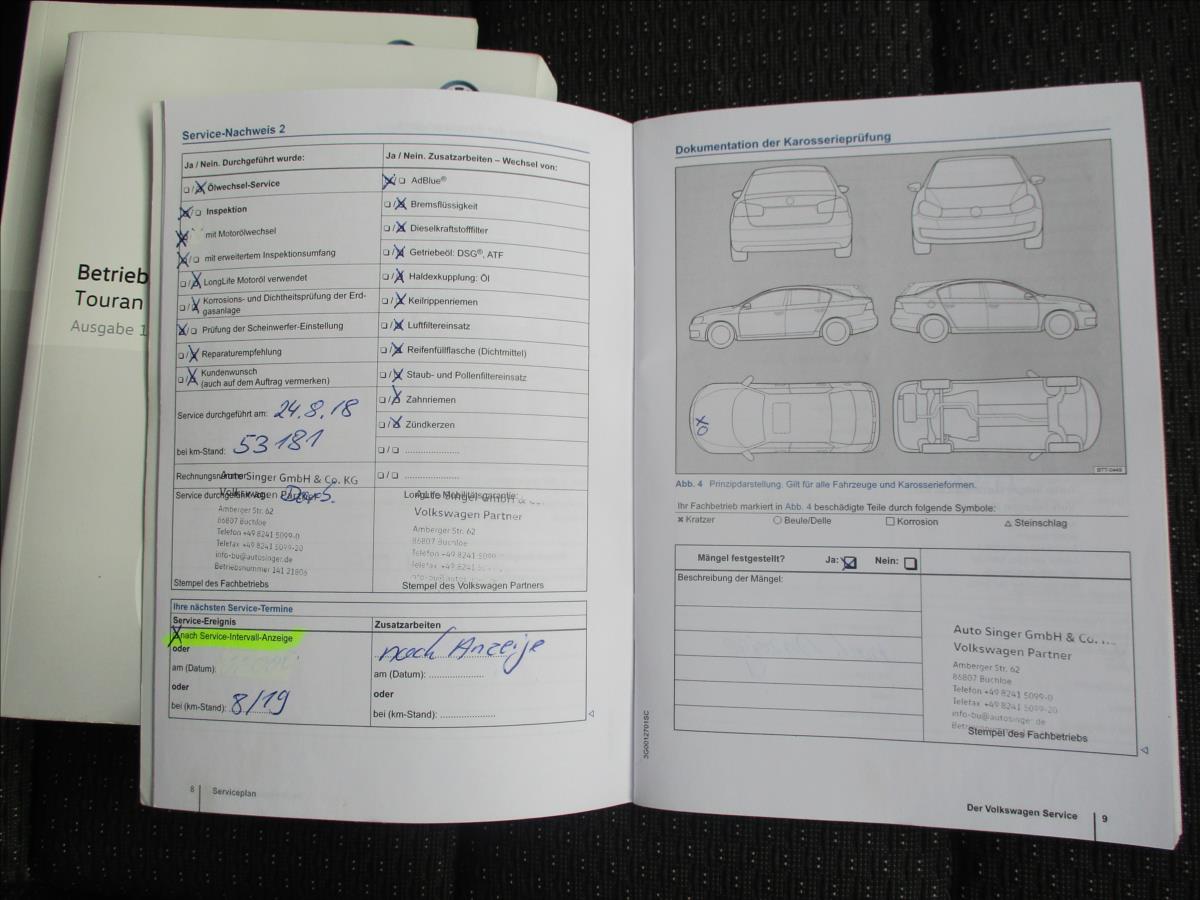 Betrieb
Touran
Ausgabe 1
Service-Nachweis 2
Ja / Nein. Durchgeführt wurde:
Ja / Nein. Zusatzarbeiten – Wechsel von:
Ölwechsel-Service
AdBlue®
Inspektion
Bremsflüssigkeit
mit Motorölwechsel
Dieselkraftstofffilter
mit erweitertem Inspektionsumfang
Getriebeöl: DSG®, ATF
LongLife Motoröl verwendet
Haldexkupplung: Öl
Korrosions- und Dichtheitsprüfung der Erd-
gasanlage
Keilrippenriemen
Prüfung der Scheinwerfer-Einstellung
Luftfiltereinsatz
Reparaturempfehlung
Reifenfüllflasche (Dichtmittel)
Kundenwunsch
(auch auf dem Auftrag vermerken)
Staub- und Pollenfiltereinsatz
Zahnriemen
Service durchgeführt am: 24.8.18
Zündkerzen
bei km-Stand: 53181
Auto Singer GmbH & Co. KG
Volkswagen Partner
Amberger Str. 62
86807 Buchloe
Telefon +49 8241 5099-0
Telefax +49 8241 5099-20
info-bu@autosinger.de
Betriebsnummer 141 21806
Stempel des Fachbetriebs
LongLife Mobilitätsgarantie:
Volkswagen Partner
Amberger Str. 62
86807 Buchloe
Telefon +49 8241 5099
Telefax +49 8241
Stempel des Volkswagen Partners
Ihre nächsten Service-Termine
Service-Ereignis
Zusatzarbeiten
nach Service-Intervall-Anzeige
nach Anzeige
oder
am (Datum):
am (Datum):
oder
oder
bei (km-Stand): 8/19
bei (km-Stand):
8 Serviceplan
Dokumentation der Karosserieprüfung
BTT-0449
Abb. 4 Prinzipdarstellung. Gilt für alle Fahrzeuge und Karosserieformen.
Ihr Fachbetrieb markiert in Abb. 4 beschädigte Teile durch folgende Symbole:
Kratzer Beule/Delle Korrosion Steinschlag
Mängel festgestellt? Ja: Nein:
Beschreibung der Mängel:
Auto Singer GmbH & Co.
Volkswagen Partner
Amberger Str. 62
86807 Buchloe
Telefon +49 8241 5099-0
Telefax +49 8241 5099-20
info-bu@autosinger.de
Stempel des Fachbetriebs
3G0012701SC
Der Volkswagen Service 9